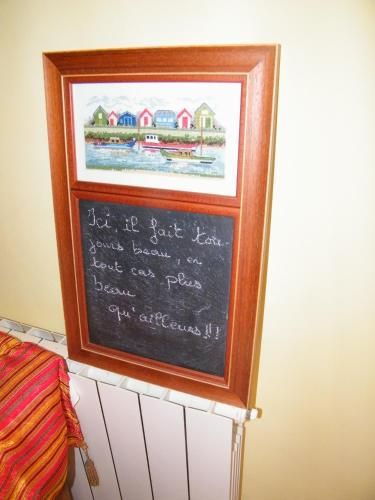 Ici, il fait tou-
jours beau, en
tout cas plus
beau
qu'ailleurs!!!